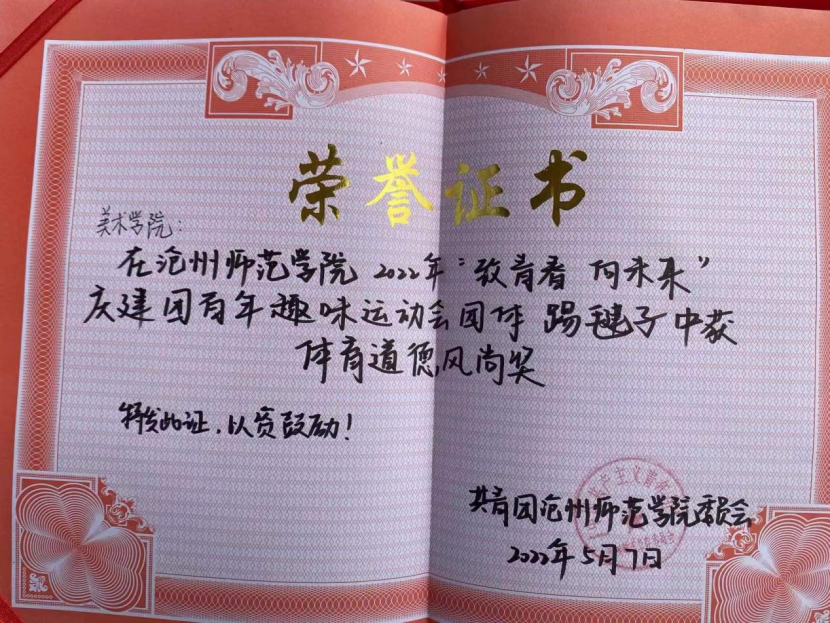 荣誉证书
美术学院：
在沧州师范学院2022年“致青春 向未来”
庆建团百年趣味运动会团体踢毽子中获
体育道德风尚奖
特发此证，以资鼓励！
共青团沧州师范学院委员会
2022年5月7日